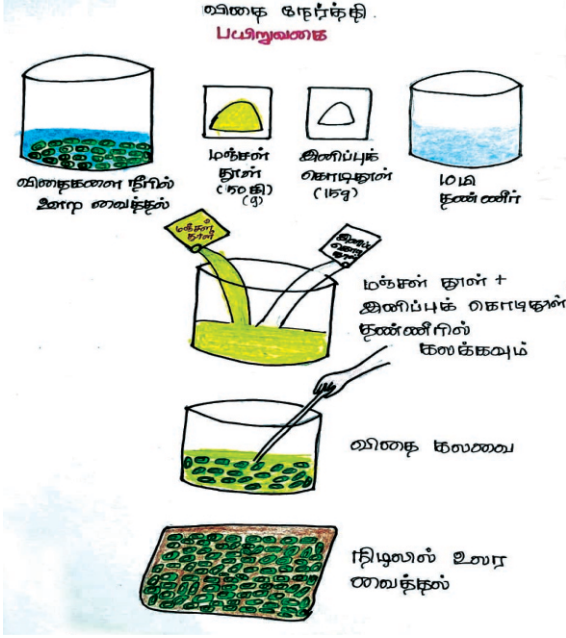 விதை நேர்த்தி
பயிறுவகை
விதைகளை நீரில்
ஊற வைத்தல்
மஞ்சள்
தூள்
(50 கி)
(g)
இனிப்புக்
கொடிதூள்
(15g)
தண்ணீர்
மஞ்சள்
தூள்
இனிப்பு
கொடி
தூள்
மஞ்சள் தூள் +
இனிப்புக் கொடிதூள்
தண்ணீரில்
கலக்கவும்
விதை கலவை
நிழலில் உலர
வைத்தல்